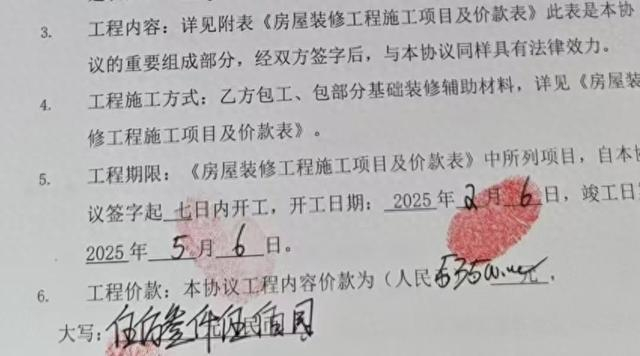 3. 工程内容：详见附表《房屋装修工程施工项目及价款表》此表是本协
议的重要组成部分，经双方签字后，与本协议同样具有法律效力。
4. 工程施工方式：乙方包工、包部分基础装修辅助材料，详见《房屋装
修工程施工项目及价款表》。
5. 工程期限：《房屋装修工程施工项目及价款表》中所列项目，自本协
议签字起 七日内开工，开工日期： 2025 年 2 月 6 日，竣工日
2025 年 5 月 6 日。
6. 工程价款：本协议工程内容价款为（人民 元，
大写：